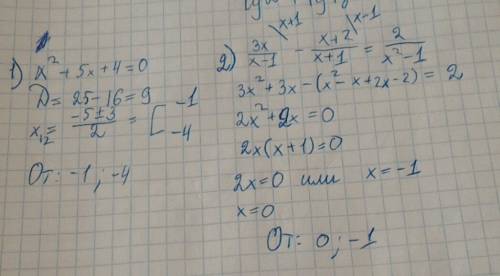 1) x² + 5x + 4 = 0
D = 25 - 16 = 9
x₁₂ = (-5 ± 3)/2 = [ -1
-4
От: -1 ; -4
2.) 3x/(x-1) \x+1 - (x+2)/(x+1) \x-1 = 2/(x²-1)
3x² + 3x - (x² - x + 2x - 2) = 2
2x² + 2x = 0
2x(x+1) = 0
2x = 0 или x = -1
x = 0
От: 0 ; -1